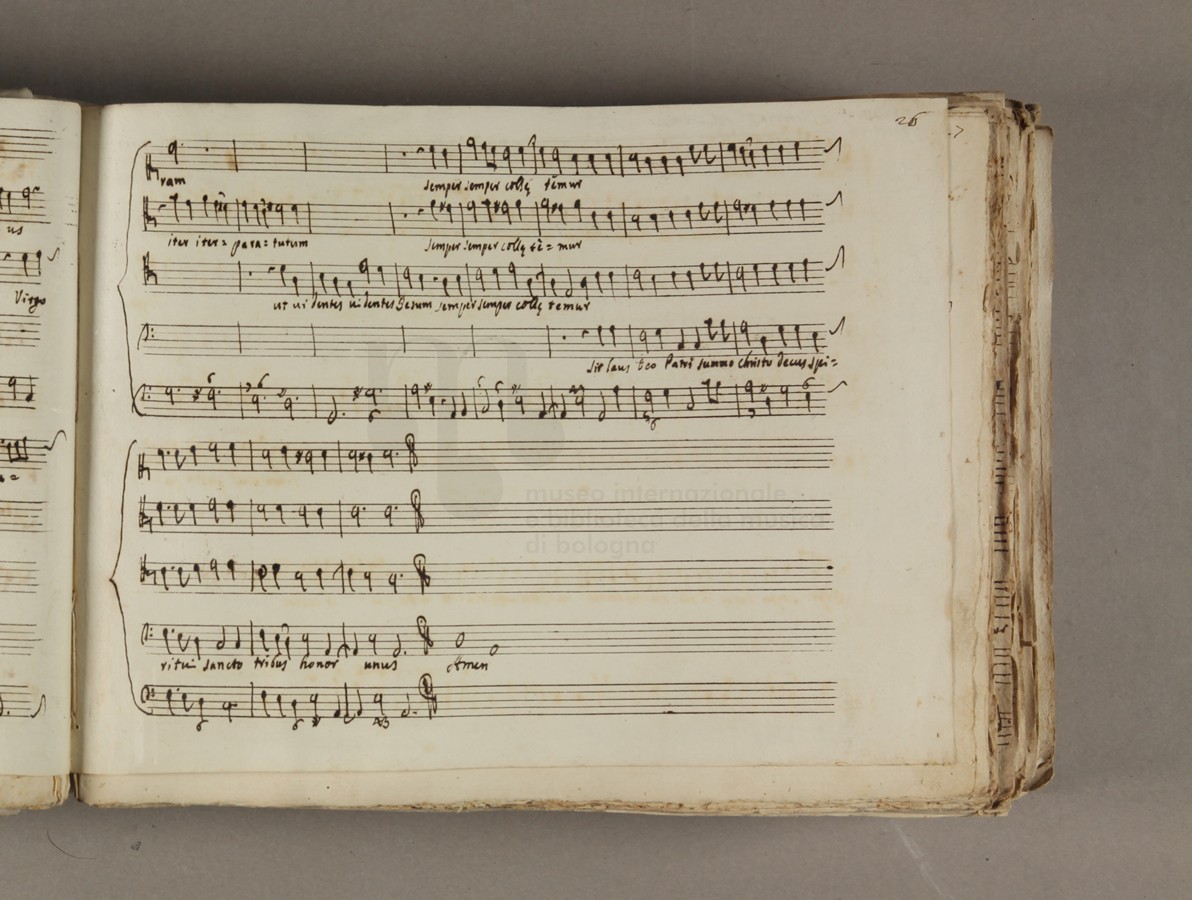 26
us
Virgo
ram
semper semper collę temur
iter iter= para= tutum
semper semper collę tę= mur
ut uidentes uidentes Iesum semper semper collę temur
sit laus Deo Patri summo Christo decus spi=
museo internazionale
e biblioteca della musica
di bologna
ritui sancto tribus honor unus Amen